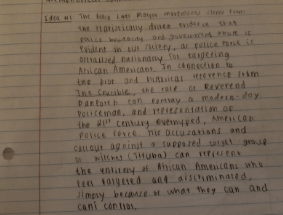 Idea #1 The
the statistically driven evidence that
police brutality and
evident in our society, as police force is
utilized nationally for targeting
African Americans. In
the plot and political reference token
The Crucible, the role of Reverend
Danforth can portray a modern day
Policeman, and representation of
the 21st century American
Police force. His accusations and
callous against a supposed group
of witches (Tituba) can represent
the entirety of African Americans who
feel targeted and discriminated,
simply because of what they can and
cant control.